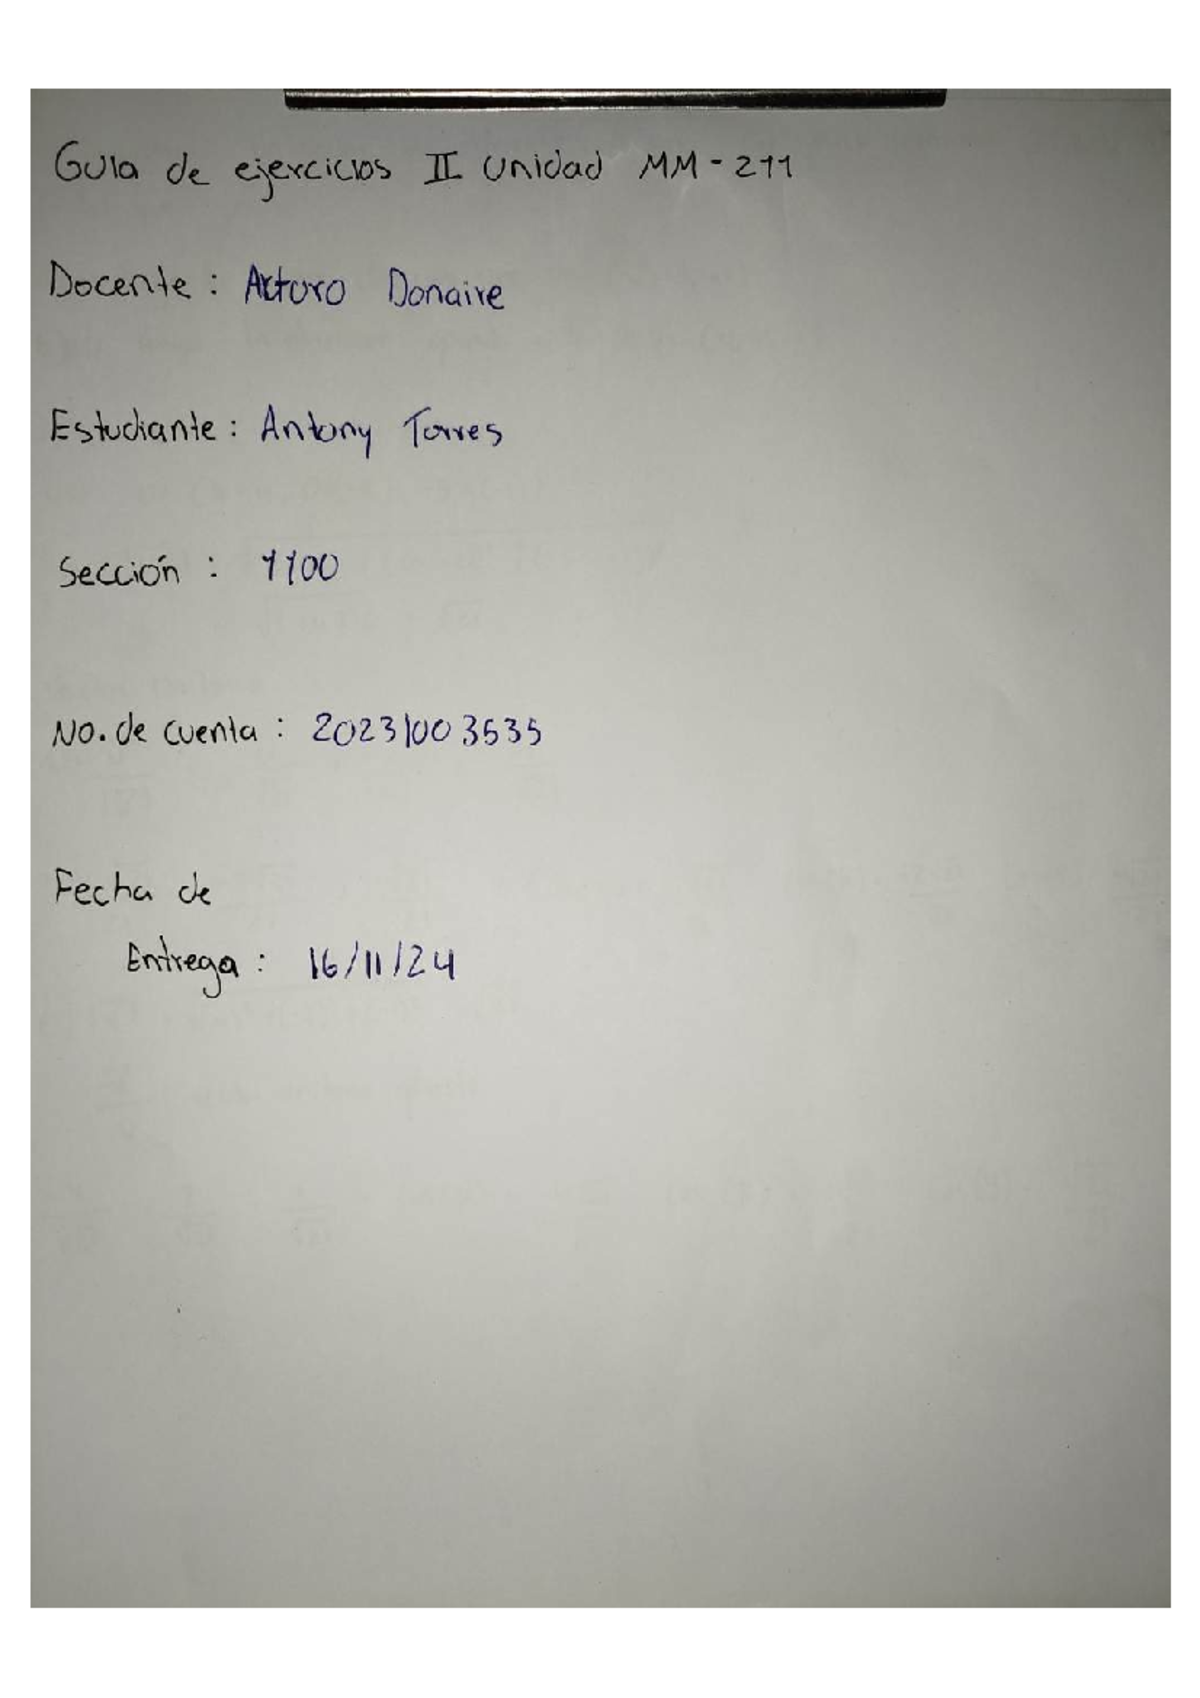 Guía de ejercicios II Unidad MM-211
Docente: Arturo Donaire
Estudiante: Antony Torres
Sección: 1100
No. de cuenta: 20231003535
Fecha de
Entrega: 16/11/24